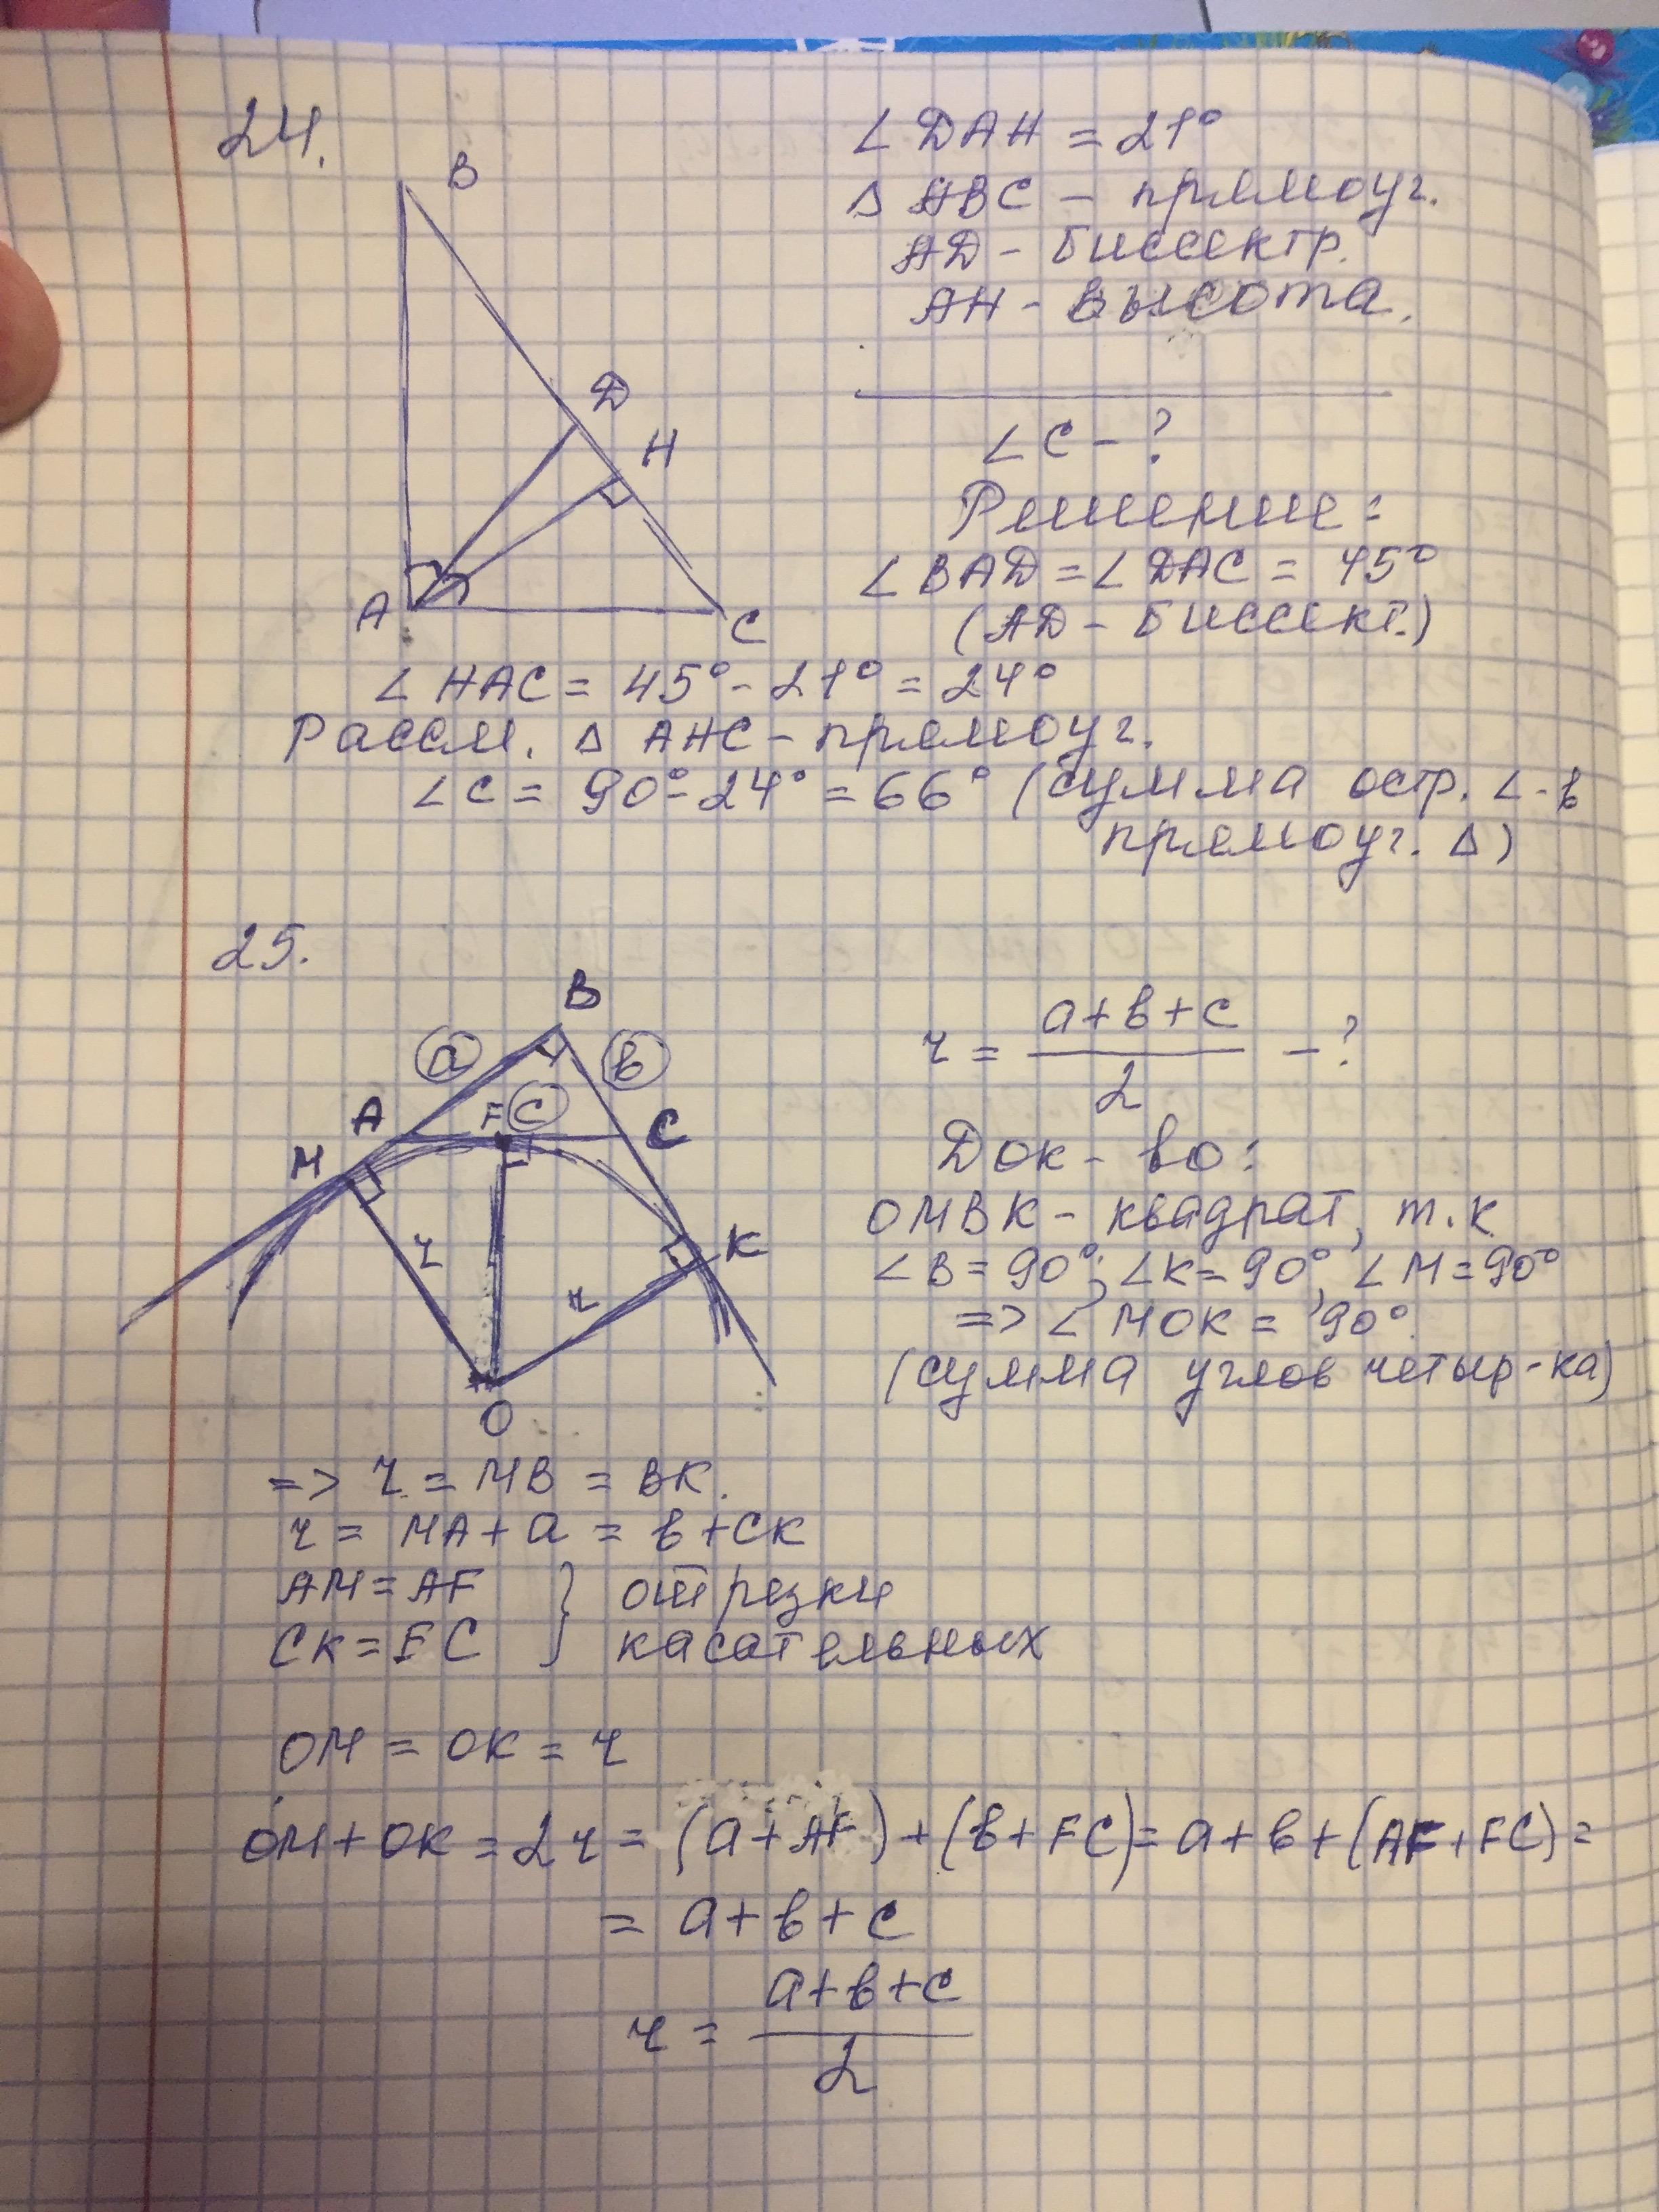 24.
B
Д
H
A
C
∠ДAH = 21°
Δ ABC – прямоуг.
AД – биссектр.
AH – высота.
∠C – ?
Решение:
∠BAД = ∠ДAC = 45°
(AД – биссект.)
∠HAC = 45° - 21° = 24°
Рассм. Δ AHC – прямоуг.
∠C = 90° - 24° = 66° (сумма остр. ∠-в
прямоуг. Δ)
25.
B
a
в
A
F
c
C
M
K
r
r
O
r = (a+в+c)/2 – ?
Док-во:
OMBK – квадрат, т.к
∠B = 90°; ∠K = 90°, ∠M = 90°
=> ∠MOK = 90°.
(сумма углов четыр-ка)
=> r = MB = BK.
r = MA + a = в + CK
AM = AF } отрезки
CK = FC } касательных
OM = OK = r
OM + OK = 2r = (a + AF) + (в + FC) = a + в + (AF + FC) =
= a + в + c
r = (a+в+c)/2